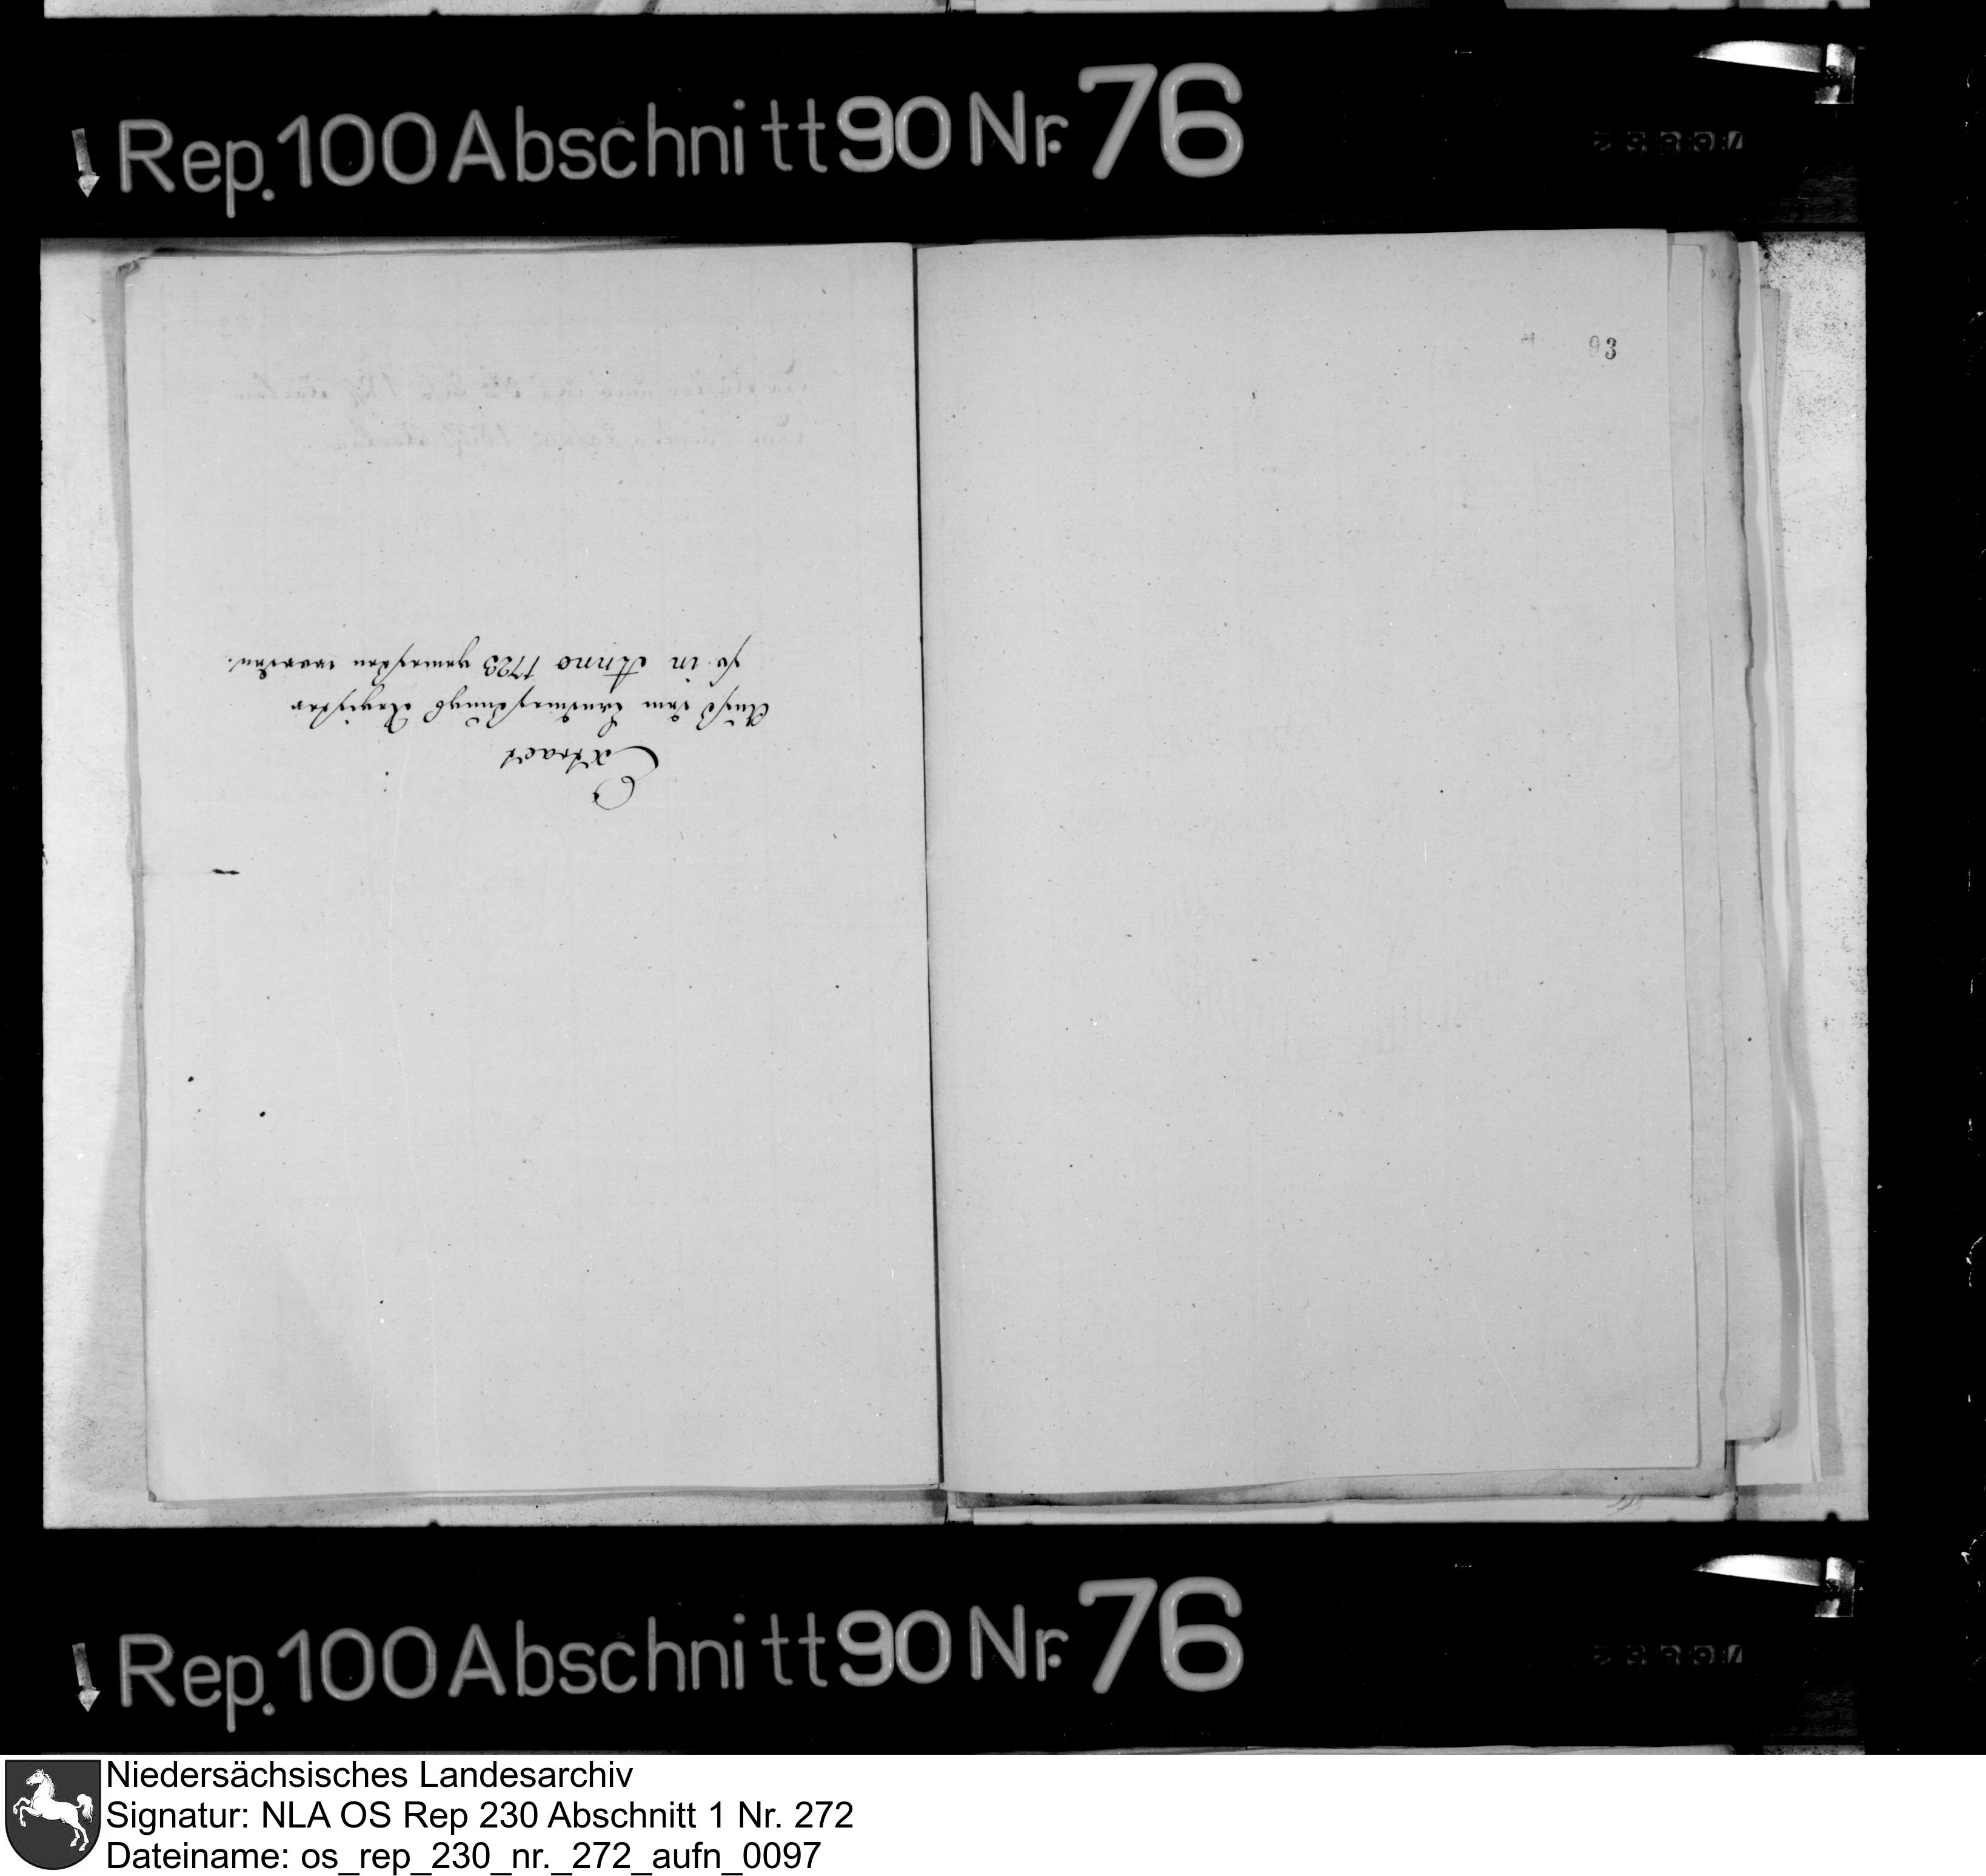 Rep. 100 Abschnitt 90 Nr. 76
93
Extract
Auß dem Landmeßungs Register
so in Anno 1723 gemeßen worden.
Rep. 100 Abschnitt 90 Nr. 76
Niedersächsisches Landesarchiv
Signatur: NLA OS Rep 230 Abschnitt 1 Nr. 272
Dateiname: os_rep_230_nr._272_aufn_0097